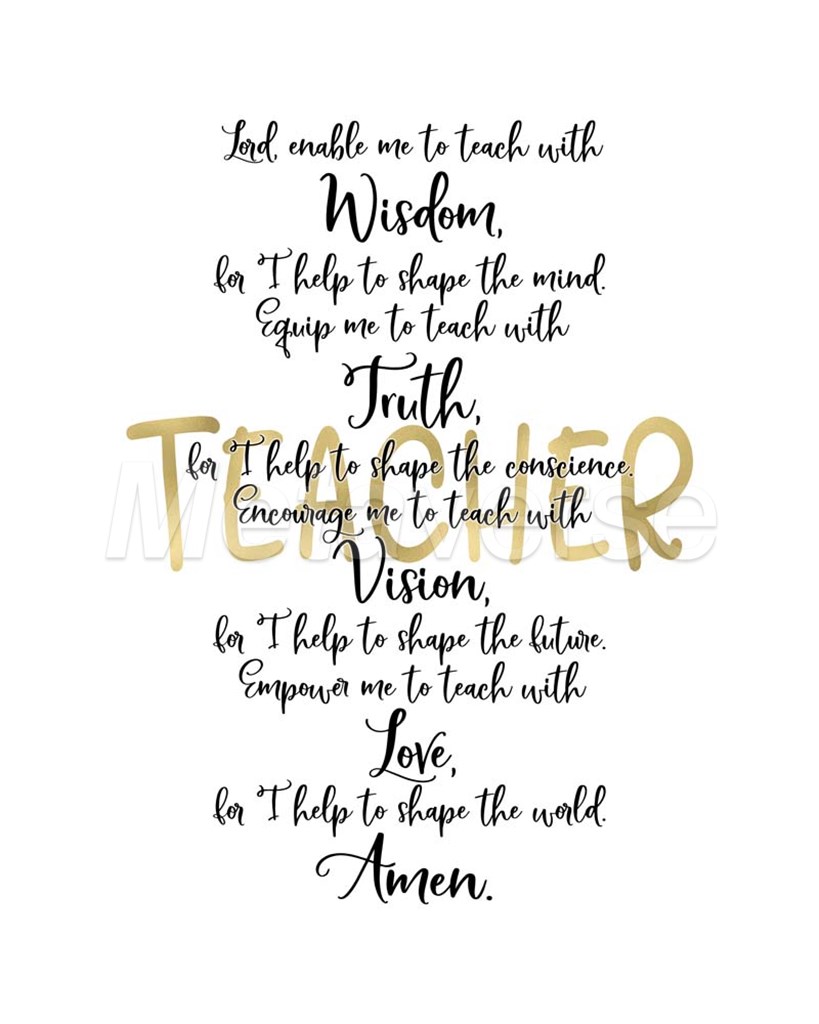 Lord, enable me to teach with
Wisdom,
for I help to shape the mind.
Equip me to teach with
Truth,
TEACHER
for I help to shape the conscience.
Metaverse
Encourage me to teach with
Vision,
for I help to shape the future.
Empower me to teach with
Love,
for I help to shape the world.
Amen.